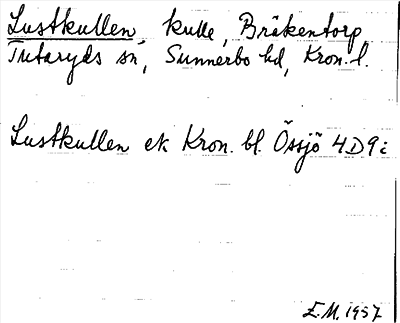 Lustkullen, kulle, Bråkentorp,
Tutaryds sn, Sunnerbo hd, Kron. l.
Lustkullen ek Kron. bl. Össjö 4D9i
E.M. 1957